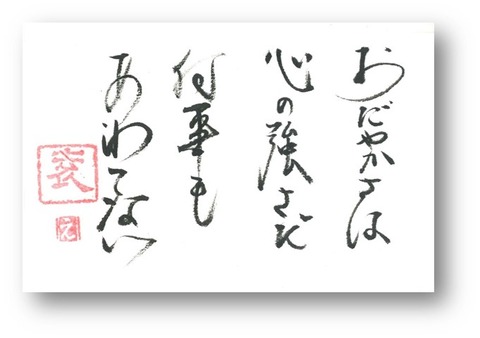 おだやかさは
心の強さだ
何事も
あわてない